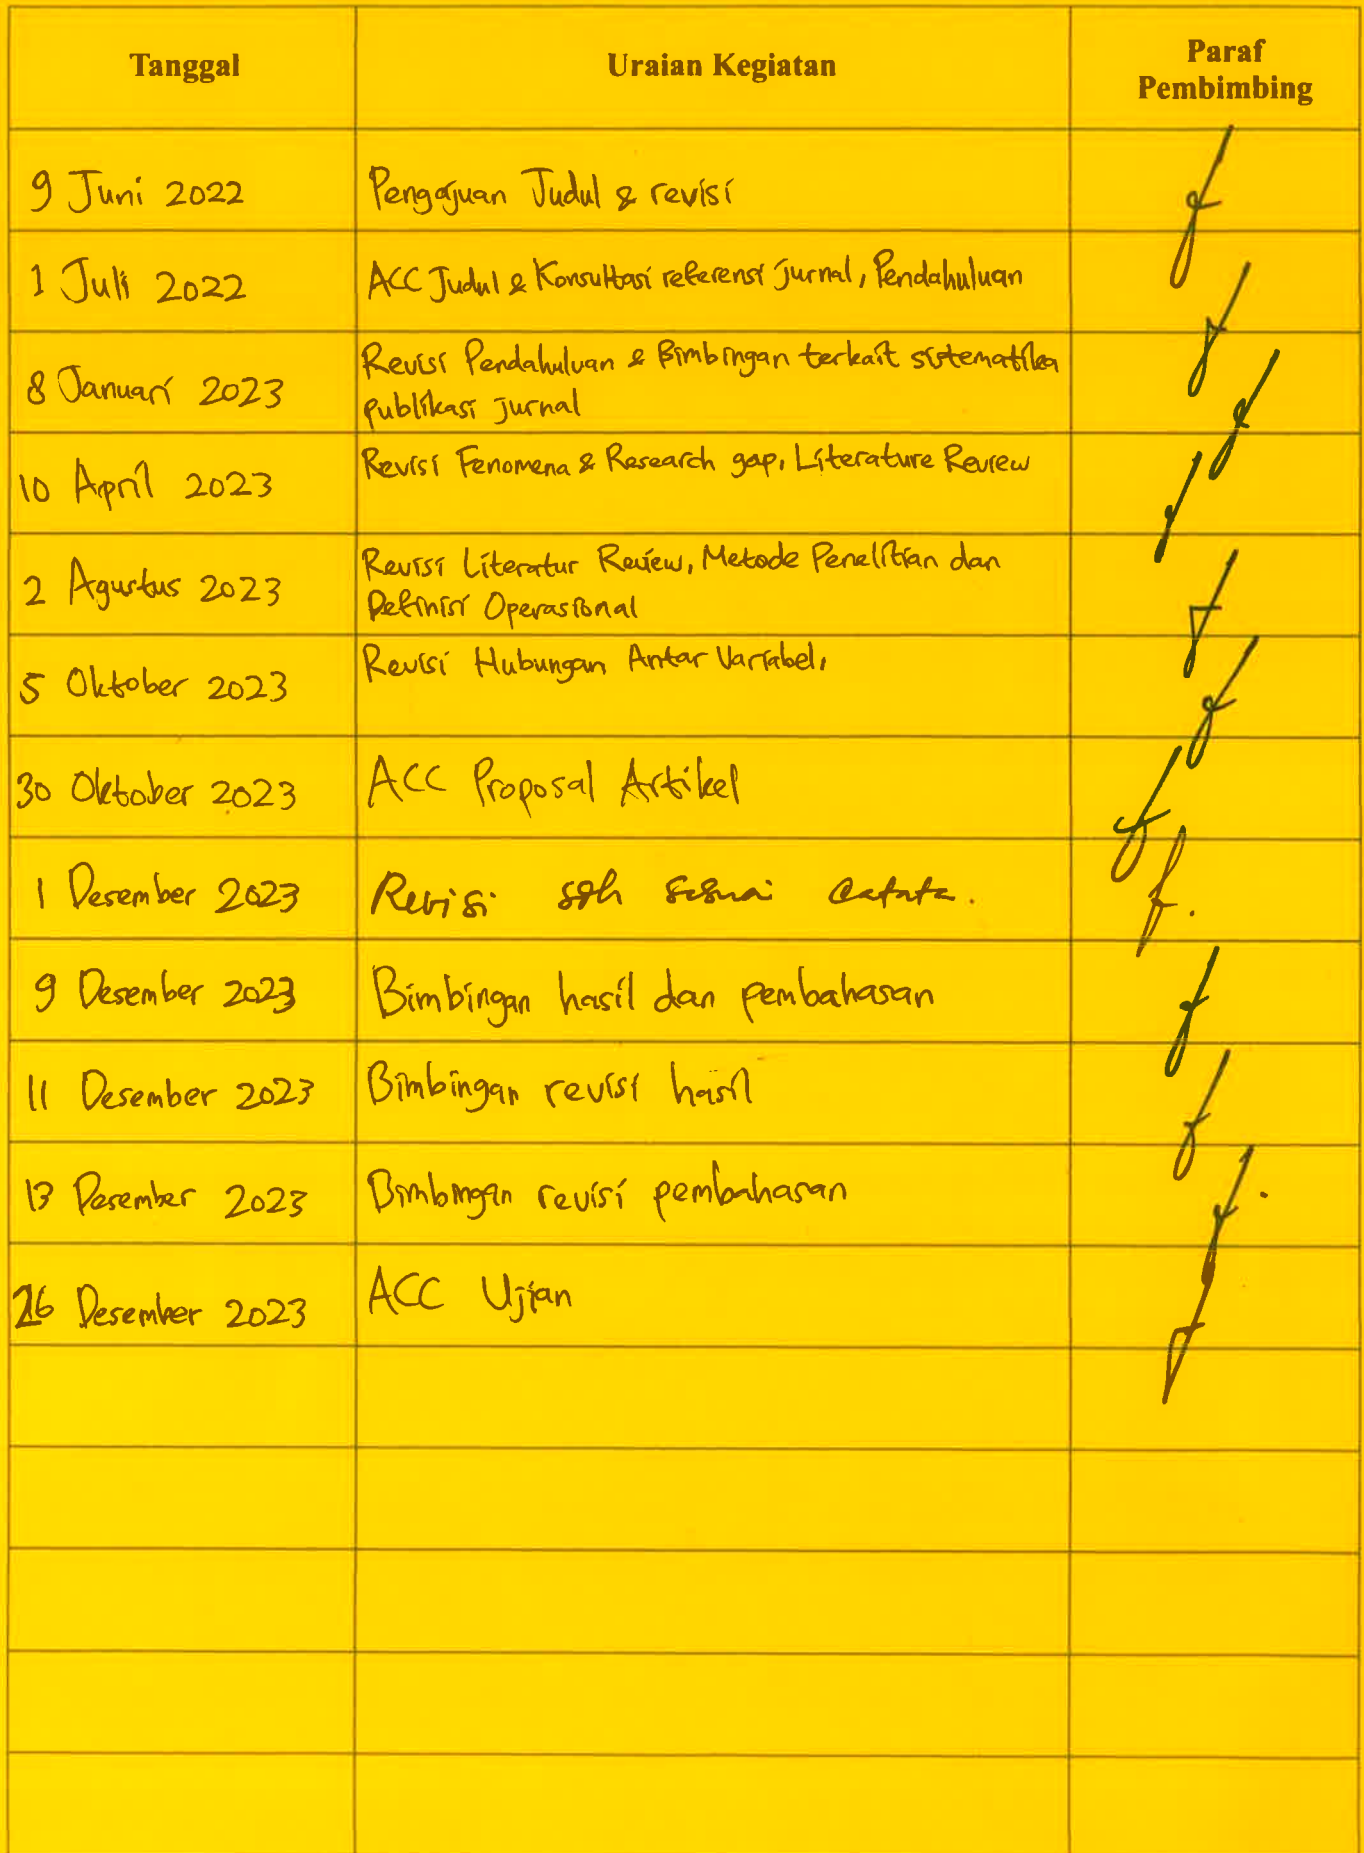 Tanggal Uraian Kegiatan Paraf
Pembimbing
9 Juni 2022 Pengajuan Judul & revisi
1 Juli 2022 ACC Judul & Konsultasi referensi jurnal, Pendahuluan
8 Januari 2023 Revisi Pendahuluan & Bimbingan terkait sistematika
publikasi jurnal
10 April 2023 Revisi Fenomena & Research gap, Literature Review
2 Agustus 2023 Revisi Literatur Review, Metode Penelitian dan
Definisi Operasional
5 Oktober 2023 Revisi Hubungan Antar Variabel,
30 Oktober 2023 ACC Proposal Artikel
1 Desember 2023 Revisi sesuai
9 Desember 2023 Bimbingan hasil dan pembahasan
11 Desember 2023 Bimbingan revisi hasil
13 Desember 2023 Bimbingan revisi pembahasan
26 Desember 2023 ACC Ujian